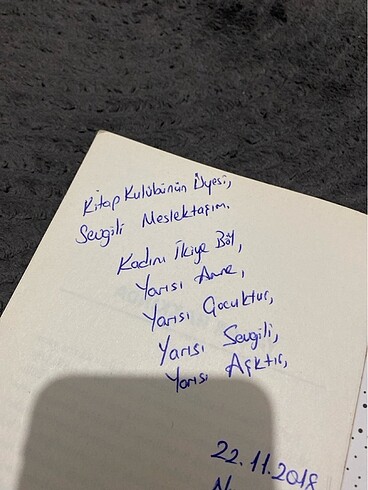 Kitap Kulübünün Üyesi,
Sevgili Meslektaşım,
Kadını İkiye Böl,
Yarısı Anne,
Yarısı Çocuktur,
Yarısı Sevgili,
Yarısı Aşktır,
22.11.2018